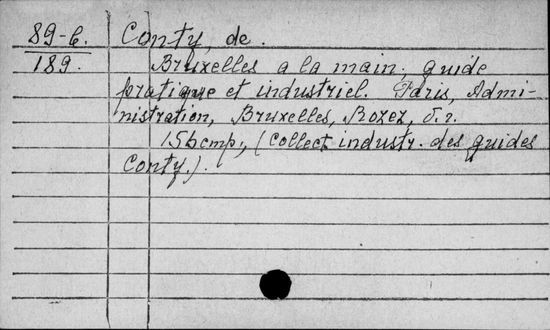 89-6.
189.
Conty, de.
Bruxelles a la main; guide
pratique et industriel. Paris, Admi-
nistration, Bruxelles, Rozez, б. г.
156 стр., (Collect. industr. des guides
Conty.).